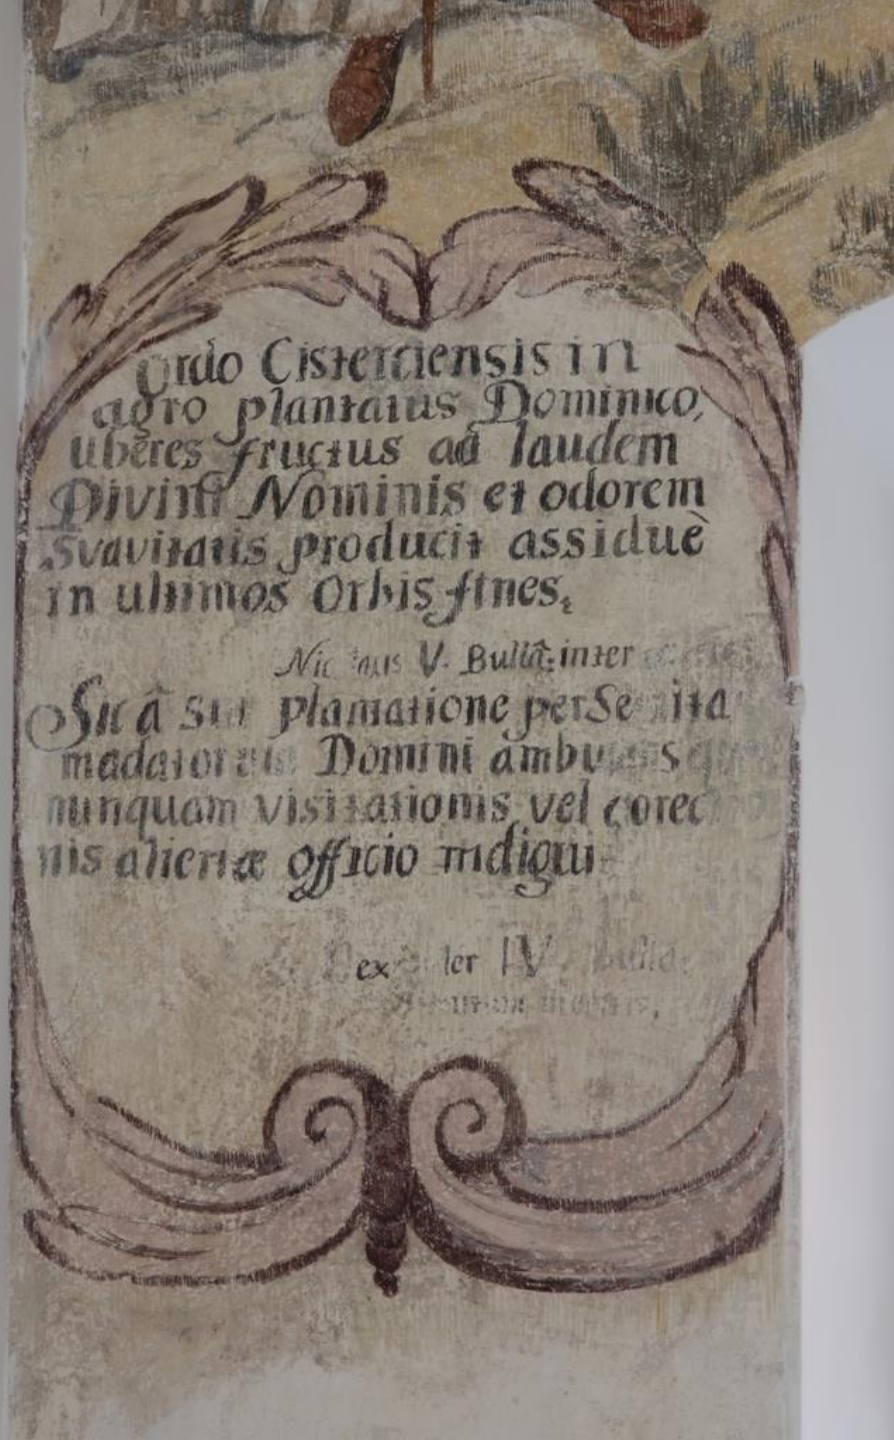 Ordo Cisterciensis in
agro plantatus Dominico,
uberes fructus ad laudem
Divini Nominis et odorem
Suavitatis producit assiduè
in ultimos Orbis fines.
V. Bullâ: inter
Sic â sui plantatione per Semita
madatorum Domini ambulans
nunquam visitationis vel corec
nis alienæ officio indigui
IV